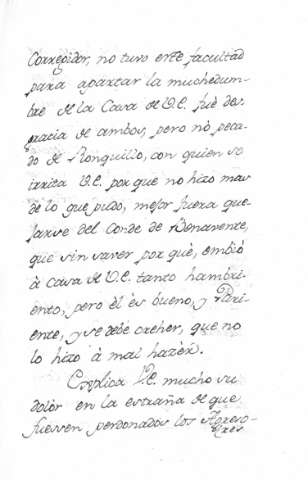 Corregidor, no tuvo este facultad
para apartar la muchedum-
bre de la Casa de V.E. fuè des
gracia de ambos, pero nò peca-
do de Ronquillo, con quien se
irrita V.E. porque no hizo mas
de lo que pudo, mejor fuera que-
jarse del Conde de Benavente,
que sin saver por què, embiò
à casa de V.E. tanto hambri-
ento, pero èl ès bueno, y Pari-
ente, y se debe creher, que no
lo hizo à mal hazèr.
Explica V.E. mucho su
dolòr en la estraña de que
fuessen perdonados los Agreso-
res